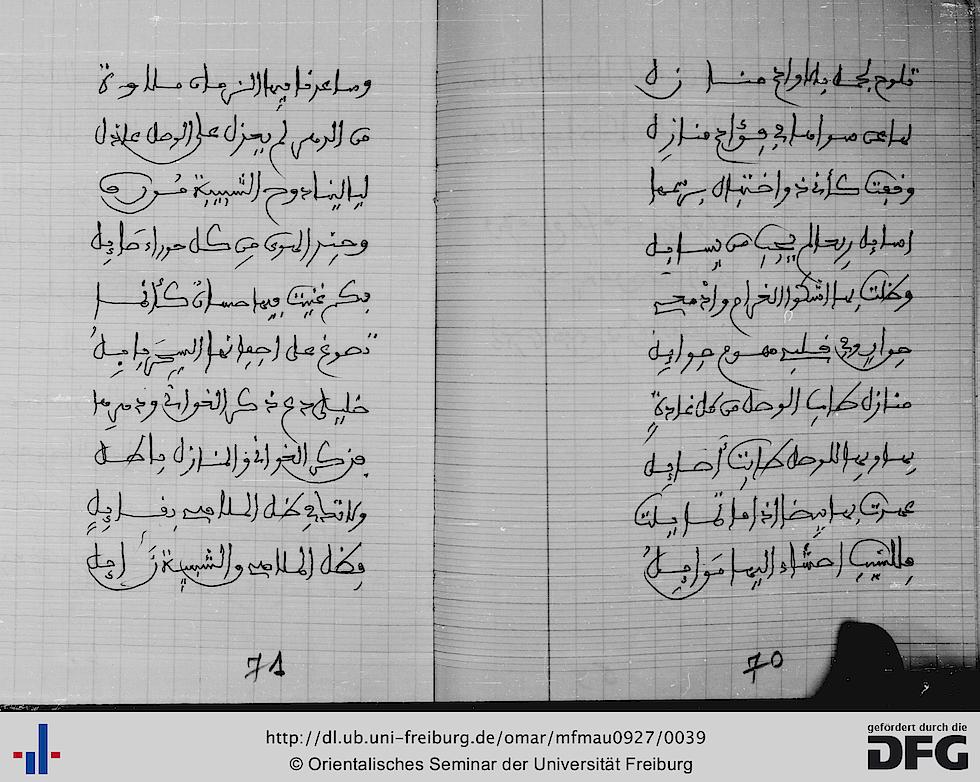 تلوح بجلد بالالواح منازل
لما عفى صواها في فؤادي منازل
وقفت كأني ذو اختبال برسمها
أسايل ربعا لم يجب من يسايله
وظلت بها أشكوا الغرام وأدمعي
جوابي وفي قلبي هموم جوايله
منازل كانت الوصل من كل غادة
بها وبها للوصل كانت أصايله
عمرت بها بيضا إذا ما تمايلت
فللشيب أحشاء إليها موايله
70
وساعدنا فيها الزمان ملاوة
من الدهر لم يعزل على الوصل عاذل
ليالينا دوح الشبيبة مورق
وجيد الهوى من كل حوراء
فكم غنيت فيها حسان كأنما
تصوغ على أجفانها السحر بابل
خليلي دع ذكر الغواني ودورها
فذكر الغواني والمنازل باطل
ولا تك في ظل الملاهي بقايل
فظل الملاهي والشبيبة زايل
71
http://dl.ub.uni-freiburg.de/omar/mfmau0927/0039
© Orientalisches Seminar der Universität Freiburg
gefördert durch die
DFG